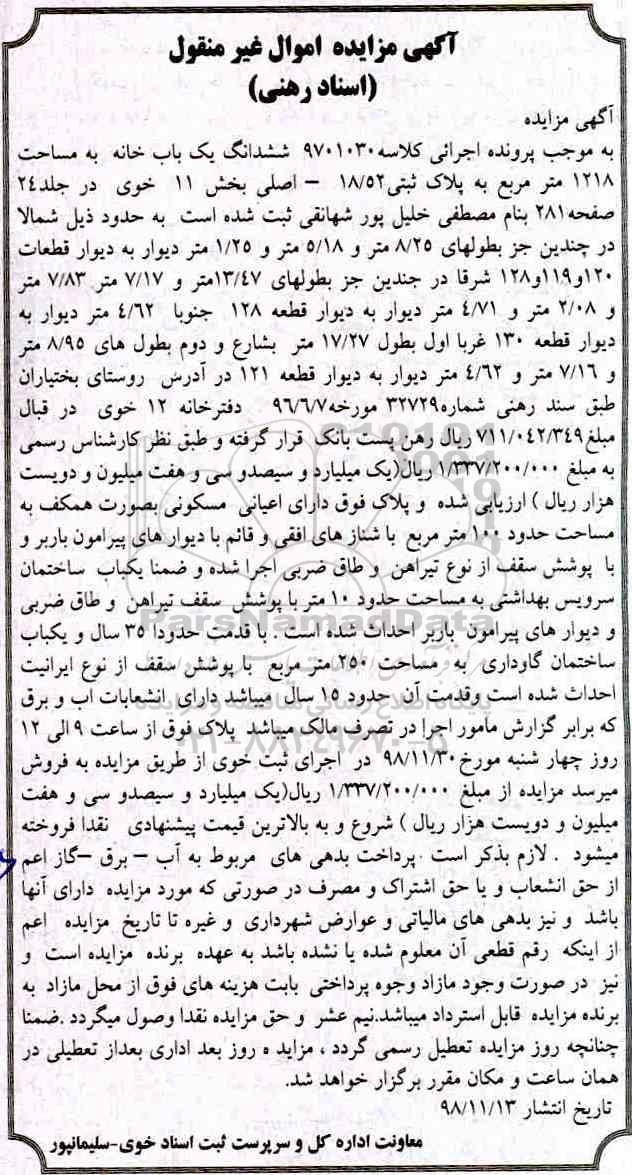 آگهی مزایده اموال غیر منقول
(اسناد رهنی)
آگهی مزایده
به موجب پرونده اجرائی کلاسه۹۷۰۱۰۳۰ ششدانگ یک باب خانه به مساحت
۱۲۱۸ متر مربع به پلاک ثبتی۱۸/۵۲ – اصلی بخش ۱۱ خوی در جلد۲۴
صفحه۲۸۱ بنام مصطفی خلیل پور شهانقی ثبت شده است به حدود ذیل شمالا
در چندین جز بطولهای ۸/۲۵ متر و ۵/۱۸ متر و ۱/۲۵ متر دیوار به دیوار قطعات
۱۲۰و۱۱۹و۱۲۸ شرقا در جندین جز بطولهای ۱۳/۴۷متر و ۷/۱۷ متر ۷/۸۳ متر
و ۲/۰۸ متر و ۴/۷۱ متر دیوار به دیوار قطعه ۱۲۸ جنوبا ۴/۶۲ متر دیوار به
دیوار قطعه ۱۳۰ غربا اول بطول ۱۷/۲۷ متر بشارع و دوم بطول های ۸/۹۵ متر
و ۷/۱۶ متر و ۴/۶۲ متر دیوار به دیوار قطعه ۱۲۱ در آدرس روستای بختیاران
طبق سند رهنی شماره۳۲۷۲۹ مورخه۹۶/۶/۷ دفترخانه ۱۲ خوی در قبال
مبلغ۷۱۱/۰۴۲/۳۴۹ ریال رهن پست بانک قرار گرفته و طبق نظر کارشناس رسمی
به مبلغ ۱/۳۳۷/۲۰۰/۰۰۰ ریال(یک میلیارد و سیصدو سی و هفت میلیون و دویست
هزار ریال ) ارزیابی شده و پلاک فوق دارای اعیانی مسکونی بصورت همکف به
مساحت حدود ۱۰۰ متر مربع با شناز های افقی و قائم با دیوار های پیرامون باربر و
با پوشش سقف از نوع تیراهن و طاق ضربی اجرا شده و ضمنا یکباب ساختمان
سرویس بهداشتی به مساحت حدود ۱۰ متر با پوشش سقف تیراهن و طاق ضربی
و دیوار های پیرامون باربر احداث شده است . با قدمت حدودا ۳۵ سال و یکباب
ساختمان گاوداری به مساحت ۲۵۰ متر مربع با پوشش سقف از نوع ایرانیت
احداث شده است وقدمت آن حدود ۱۵ سال میباشد دارای انشعابات اب و برق
که برابر گزارش مامور اجرا در تصرف مالک میباشد پلاک فوق از ساعت ۹ الی ۱۲
روز چهار شنبه مورخ۹۸/۱۱/۳۰ در اجرای ثبت خوی از طریق مزایده به فروش
میرسد مزایده از مبلغ ۱/۳۳۷/۲۰۰/۰۰۰ ریال(یک میلیارد و سیصدو سی و هفت
میلیون و دویست هزار ریال ) شروع و به بالاترین قیمت پیشنهادی نقدا فروخته
میشود . لازم بذکر است پرداخت بدهی های مربوط به آب – برق –گاز اعم
از حق انشعاب و یا حق اشتراک و مصرف در صورتی که مورد مزایده دارای آنها
باشد و نیز بدهی های مالیاتی و عوارض شهرداری و غیره تا تاریخ مزایده اعم
از اینکه رقم قطعی آن معلوم شده یا نشده باشد به عهده برنده مزایده است و
نیز در صورت وجود مازاد وجوه پرداختی بابت هزینه های فوق از محل مازاد به
برنده مزایده قابل استرداد میباشد.نیم عشر و حق مزایده نقدا وصول میگردد .ضمنا
چنانچه روز مزایده تعطیل رسمی گردد ، مزاید ه روز بعد اداری بعداز تعطیلی در
همان ساعت و مکان مقرر برگزار خواهد شد.
تاریخ انتشار ۹۸/۱۱/۱۳
معاونت اداره کل و سرپرست ثبت اسناد خوی-سلیمانپور
ParsNamadData
پایگاه اطلاع رسانی مناقصه و مزایده
۰۲۱-۸۸۳۴۹۶۷۰-۵